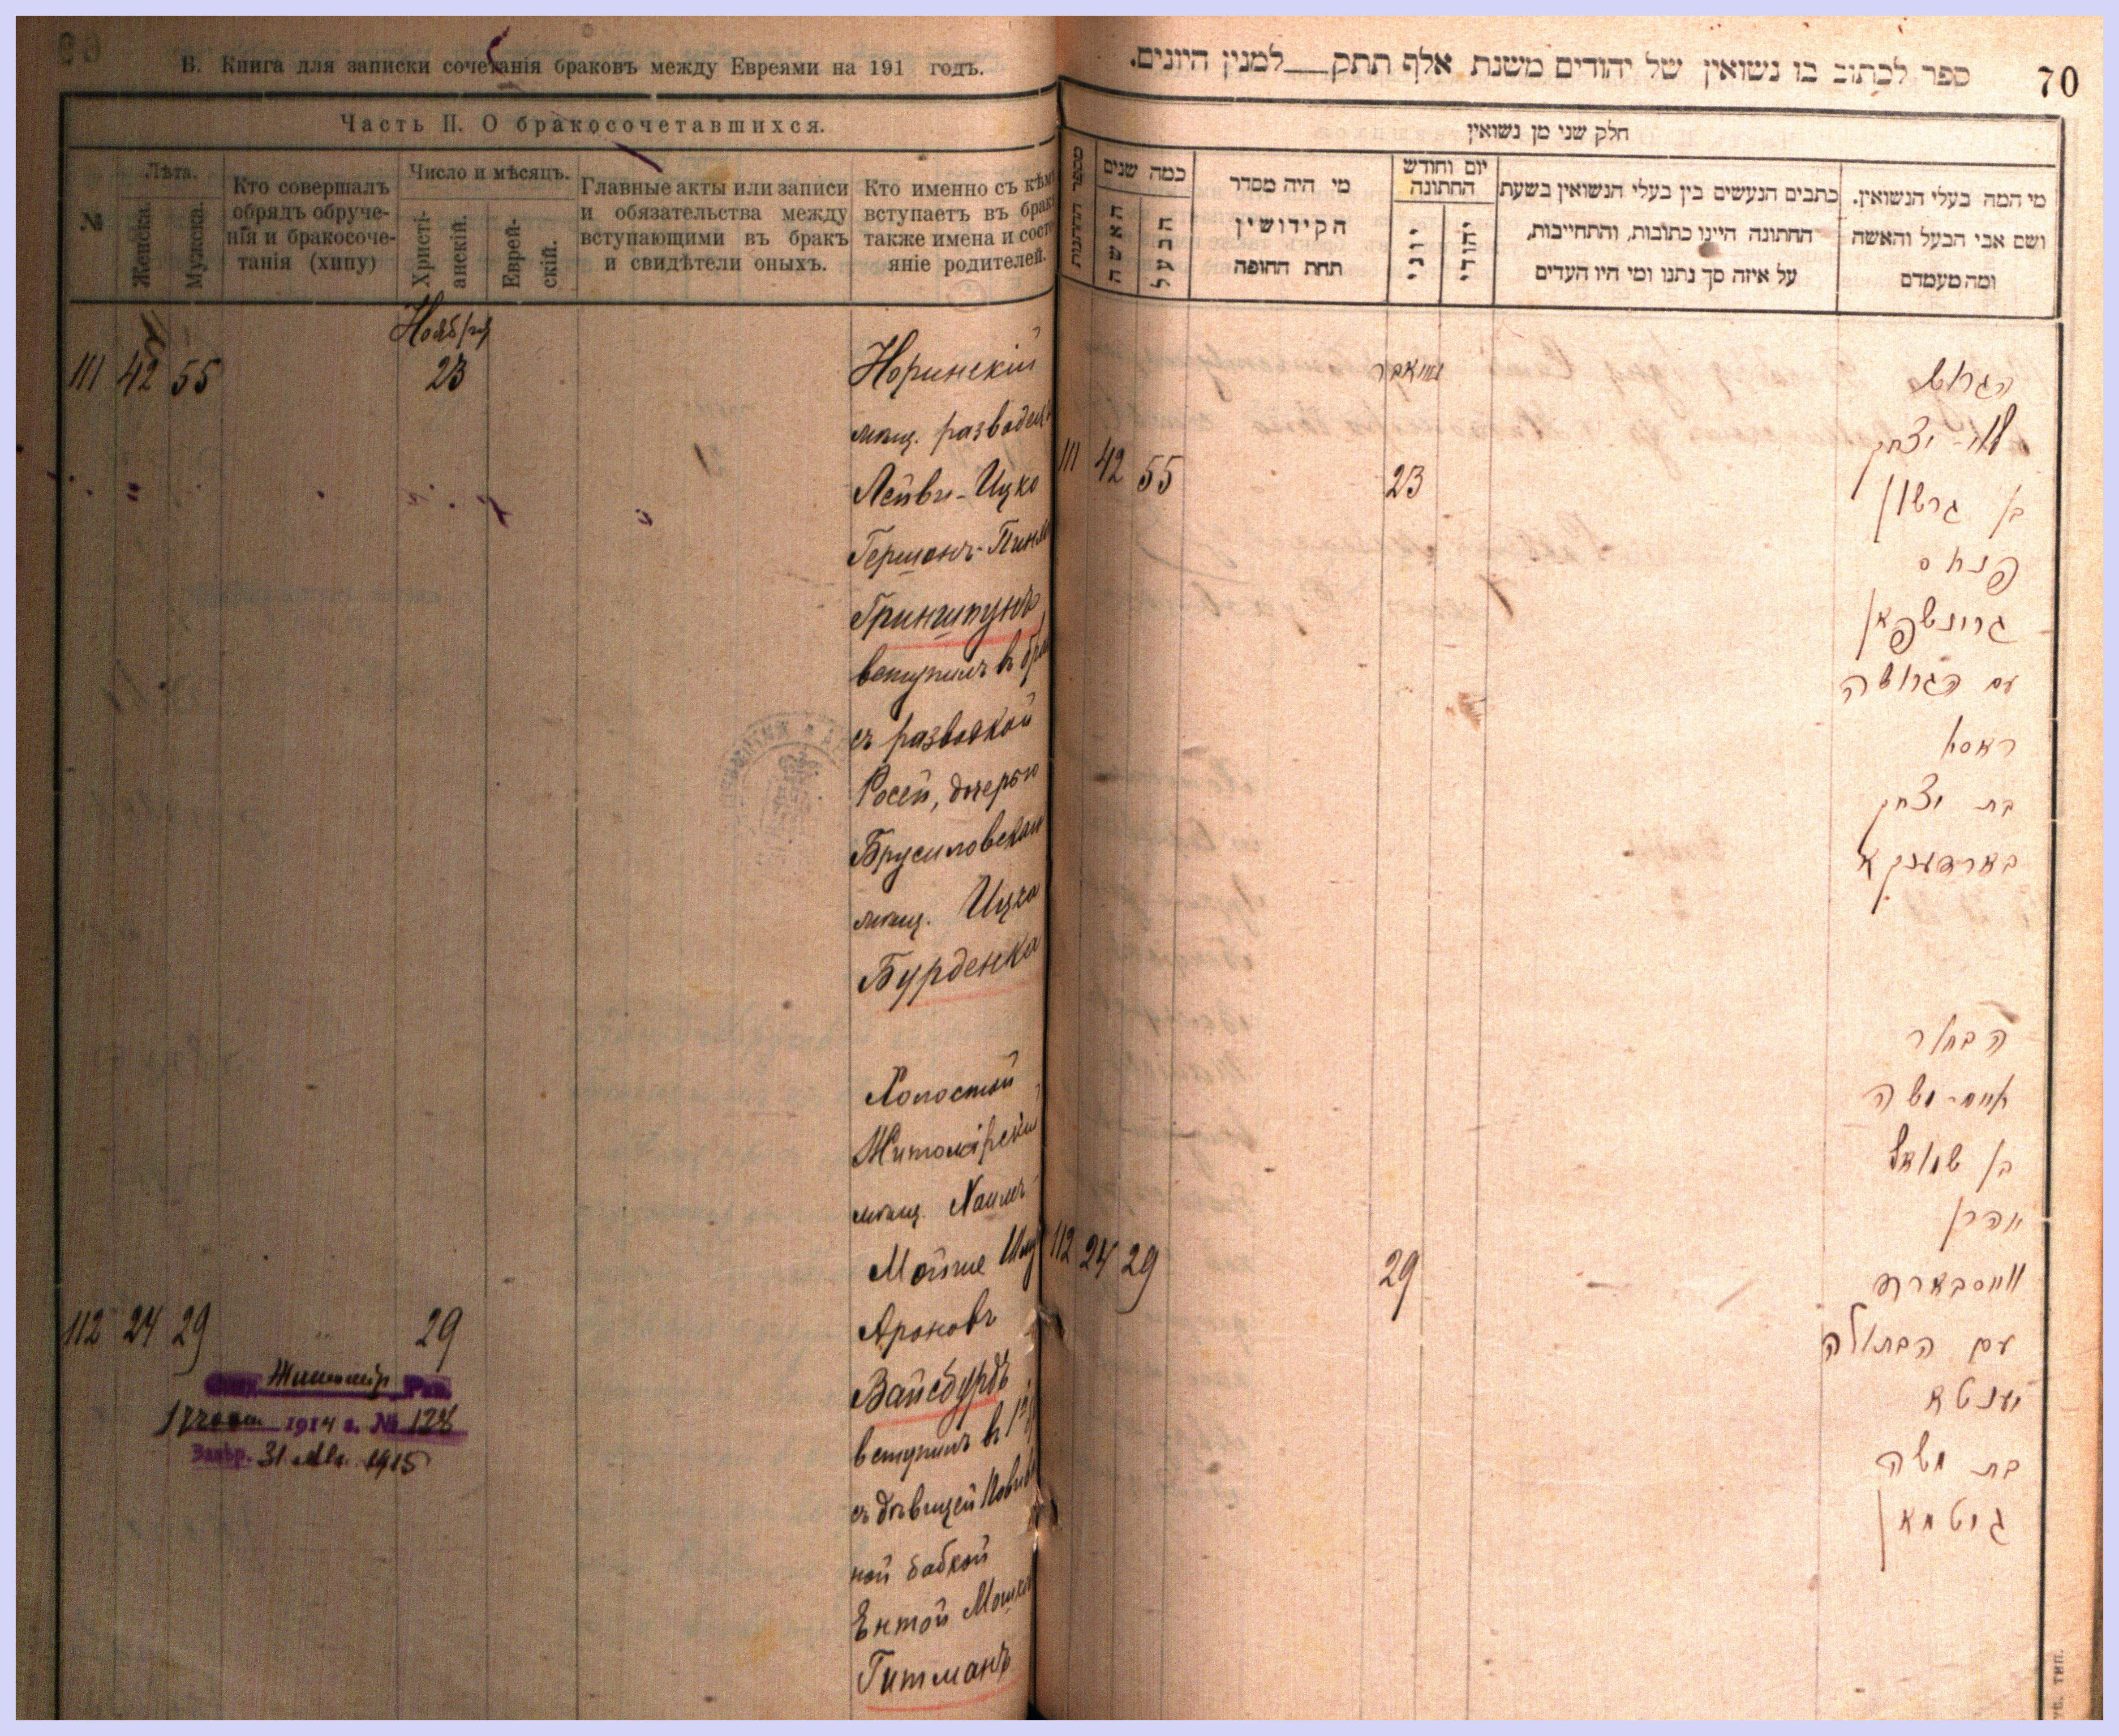 В. Книга для записки сочетанія браковъ между Евреями на 191 годъ.
Часть II. О бракосочетавшихся.
№
Лѣта.
Женска.
Мужска.
Кто совершалъ
обрядъ обруче-
нія и бракосоче-
танія (хипу)
Число и мѣсяцъ.
Христі-
анскій.
Еврей-
скій.
Главные акты или записи
и обязательства между
вступающими въ бракъ
и свидѣтели оныхъ.
Кто именно съ кѣмъ
вступаетъ въ бракъ
также имена и состо
яніе родителей.
Ноября
111 42 55 23
Норинскій
мѣщ. разводецъ
Лейви-Ицко
Германъ-Пинха
Гриншпунъ
вступилъ въ бра
съ разводкой
Росей, дочерью
Брусиловскаго
мѣщ. Ицка
Бурденка
Холостой
Житомірскій
мѣщ. Хаимъ
Мойше Шму
Ароновъ
112 24 29 29
Вайсбурдъ
вступилъ въ
съ дѣвицей
ной бабкой
Ентой Мошков
Гитманъ
Житомір
1914 г. № 128
Завѣр. 31 1915
ספר לכתוב בו נשואין של יהודים משנת אלף תתק__למנין היונים.
70
חלק שני מן נשואין
מספר החתנות
כמה שנים
האשה
הבעל
מי היה מסדר
הקידושין
תחת החופה
יום וחודש
החתונה
יוני
יהודי
כתבים הנעשים בין בעלי הנשואין בשעת
החתונה היינו כתובות, והתחייבות,
על איזה סך נתנו ומי היו העדים
מי המה בעלי הנשואין.
ושם אבי הבעל והאשה
ומה מעמדם
הגרוש
לוי-יצחק
111 42 55 23
בן גרשון
פנחס
גרינשפאן
עם הגרושה
ראסא
בת יצחק
בארדענקא
הבחור
חיים-משה
בן שמואל
אהרן
112 24 29 29
ווייסבארד
עם הבתולה
יענטא
בת משה
גיטמאן